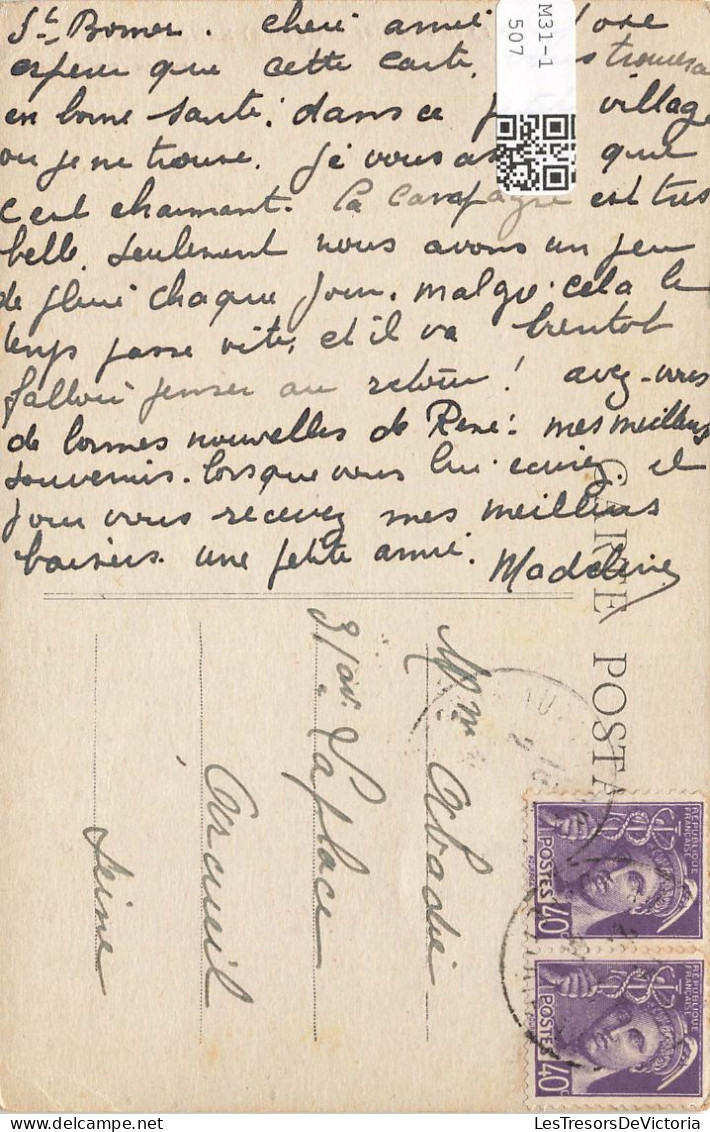 St Bomer. Cheri amie J'ose
esperer que cette carte trouvera
en bonne santé; dans ce village
ou je me trouve. Je vous as que
c'est charmant. La Campagne est tres
belle. Seulement nous avons un peu
de pluie chaque jour. malgre cela le
temps passe vite, et il va bientot
falloir penser au retour! avez-vous
de bonnes nouvelles de René: mes meilleurs
souvenirs. lorsque vous lui ecrirez. et
pour vous recevez mes meilleurs
baisers. une petite amie. Madeleine
M31-1
507
CARTE POSTA
Mme Abadie
31 av. Laplace
Arcueil
Seine
REPUBLIQUE
FRANÇAISE
POSTES 40c
REPUBLIQUE
FRANÇAISE
POSTES 40c
LesTresorsDeVictoria
LesTresorsDeVictoria.com